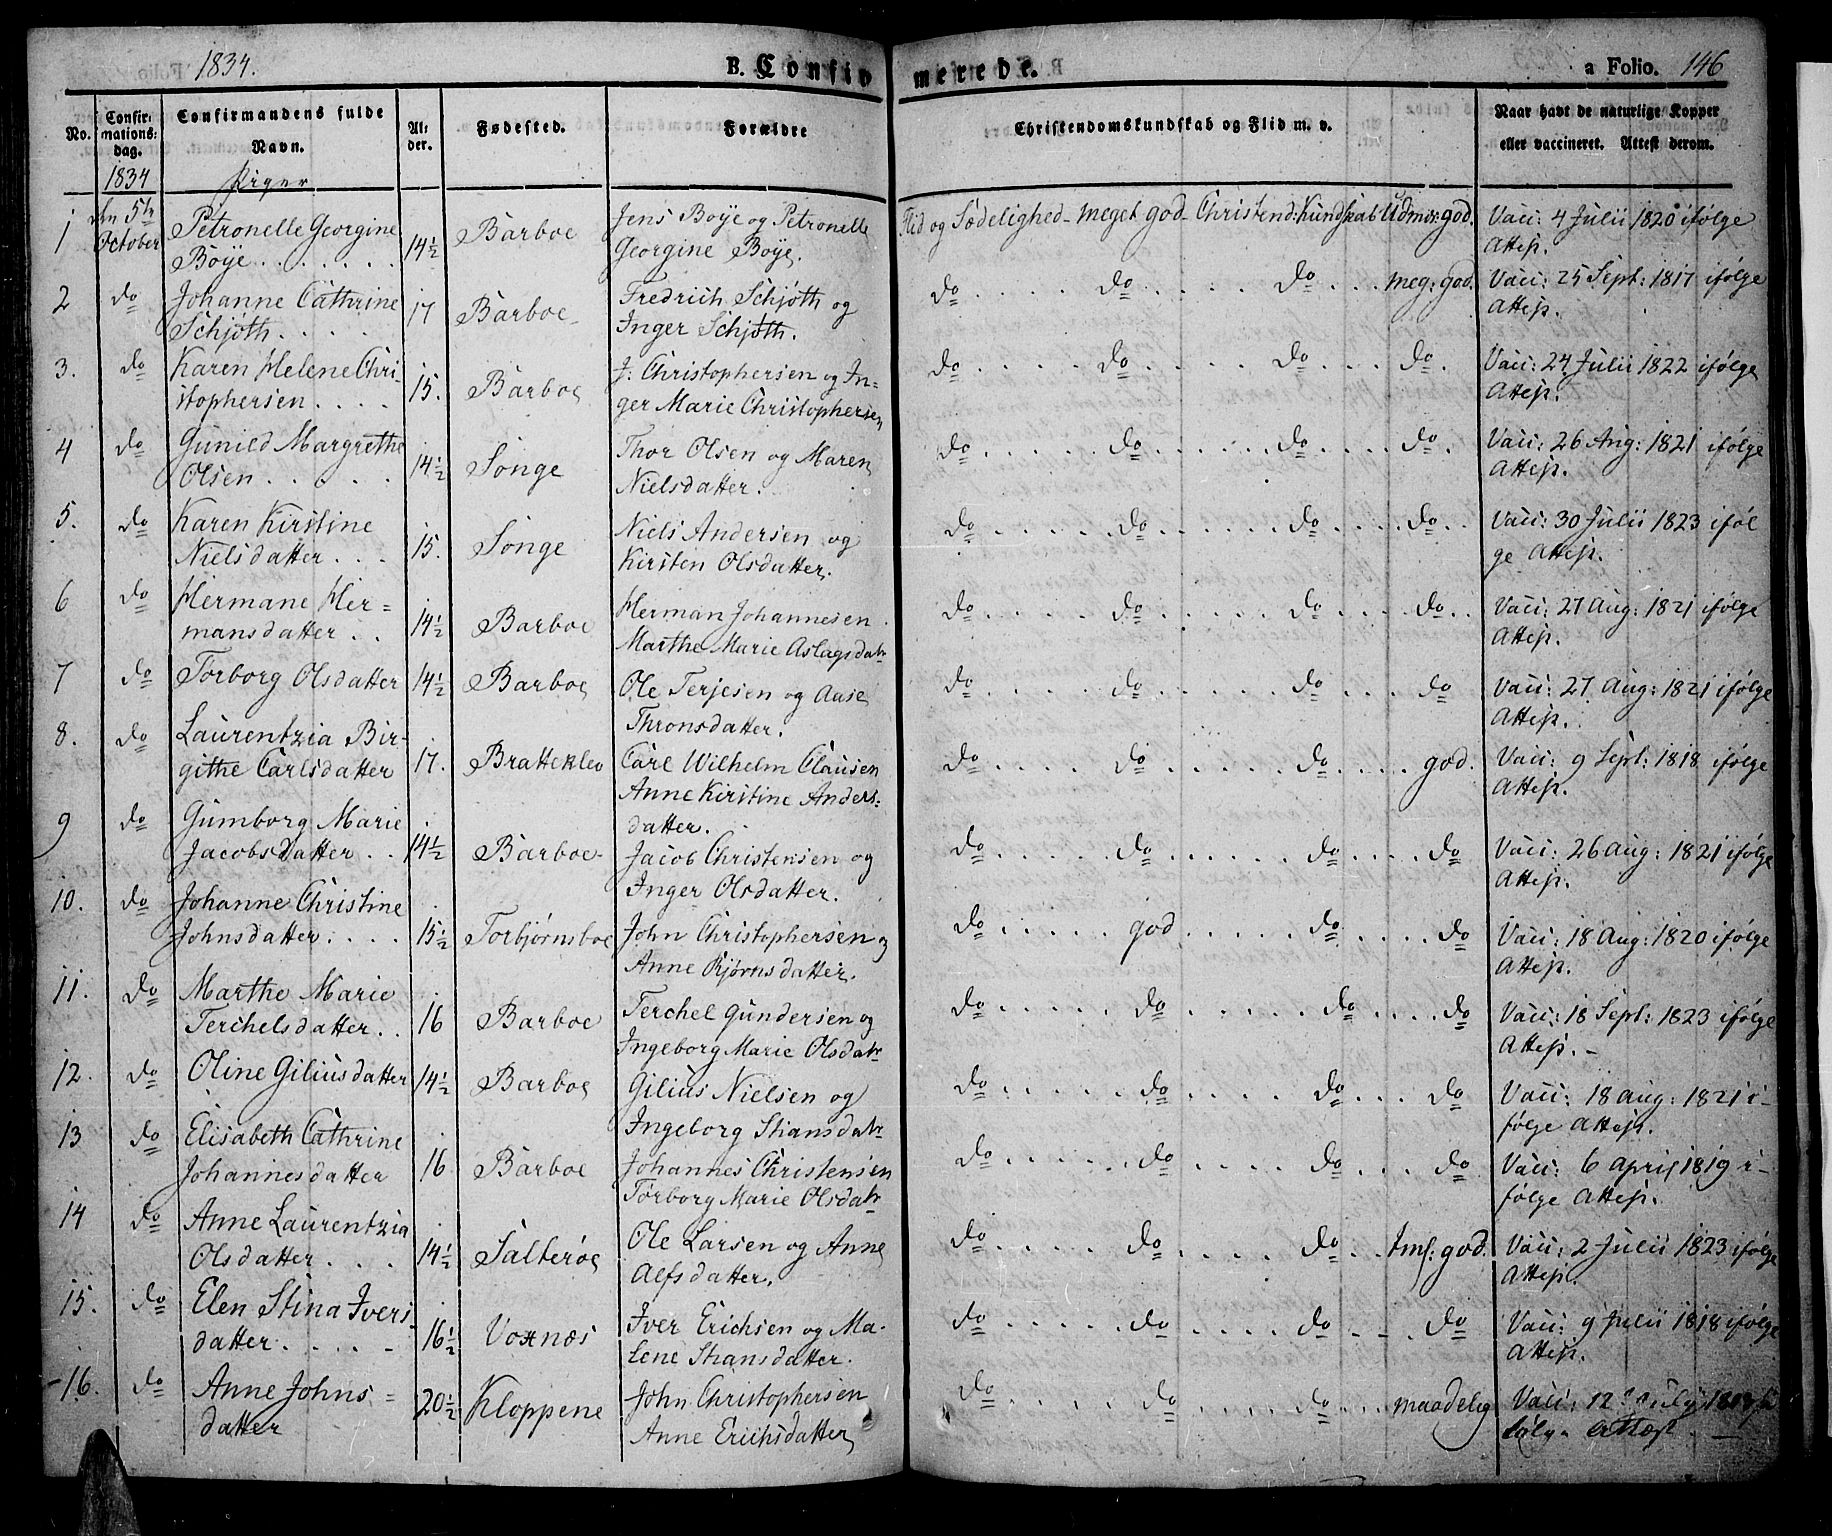 1834.
B. Confirmerede.
a Folio. 146
No.
Confirmationsdag.
Confirmandens fulde Navn.
Alder.
Fødested.
Forældre
Christendomskundskab og Flid m. v.
Naar havt de naturlige Kopper eller vaccineret. Attest derom.
1834
Piger
1 den 5te October Petronelle Georgine Böye. 14½ Barboe Jens Boye og Petronelle Georgine Böye. Flid og Sædelighed - meget god - Christend: Kundskab Udmær: god. Vacc: 4 Julii 1820 ifølge Attest.
2 do Johanne Cathrine Schjøth. 17 Barboe Fredrich Schjøth og Inger Schjøth. do do do meg: god. Vacc: 25 Sept: 1817 ifølge Attest.
3. do Karen Helene Christophersen 15. Barboe J: Christophersen og Inger Marie Christophersen do do do do. Vacc: 24 Julii 1822 ifølge Attest.
4 do Gunild Margrethe Olsen 14½ Songe Thor Olsen og Maren Nielsdatter. do do do do. Vacc: 26 Aug: 1821 ifølge Attest.
5. do Karen Kirstine Nielsdatter 15. Songe Niels Andersen og Kirsten Olsdatter. do do do do Vacc: 30 Julii 1823 ifølge Attest.
6 do Hermane Hermansdatter 14½ Barboe Herman Johannesen Marthe Marie Aslagsdatr do do do do Vacc: 27 Aug: 1821 ifølge Attest.
7 do Torborg Olsdatter 14½ Barboe Ole Terjesen og Aase Thronsdatter. do do do do Vacc: 27 Aug: 1821 ifølge Attest.
8. do Laurentzia Birgithe Carlsdatter 17. Bratteklev Carl Wilhelm Clausen Anne Kirstine Andersdatter. do do do god. Vacc: 9 Sept: 1818 ifølge Attest.
9 do Gumborg Marie Jacobsdatter 14½ Barboe Jacob Christensen og Inger Olsdatter. do do do do Vacc: 26 Aug: 1821 ifølge Attest.
10. do Johanne Christine Johnsdatter. 15½ Torbjørnsboe John Christophersen og Anne Bjørnsdatter. do god do do Vacc: 18 Aug: 1820 ifølge Attest.
11. do Marthe Marie Terchelsdatter 16 Barboe Terchel Gundersen og Ingeborg Marie Olsdatr do do do do Vacc: 18 Sept: 1823 ifølge Attest.
12. do Oline Giliusdatter 14½ Barboe Gilius Nielsen og Ingeborg Stiansdatr do do do do Vacc: 18 Aug: 1821 ifølge Attest.
13 do Elisabeth Cathrine Johannesdatter 16 Barboe Johannes Christensen Torborg Marie Olsdatr do do do do Vacc: 6 April 1819 ifølge Attest.
14 do Anne Laurentzia Olsdatter 14½ Salterøe Ole Larsen og Anne Alfsdatter. do do do tml: god. Vacc: 2 Julii 1823 ifølge Attest
15. do Elen Stina Iversdatter 16½ Voxnæs Iver Erichsen og Malene Stiansdatter. do do do do Vacc: 9 Julii 1818 ifølge Attest.
16. do Anne Johnsdatter 20½ Kloppene John Christophersen Anne Erichsdatter do do do maadelig Vacc: 12 July Attest